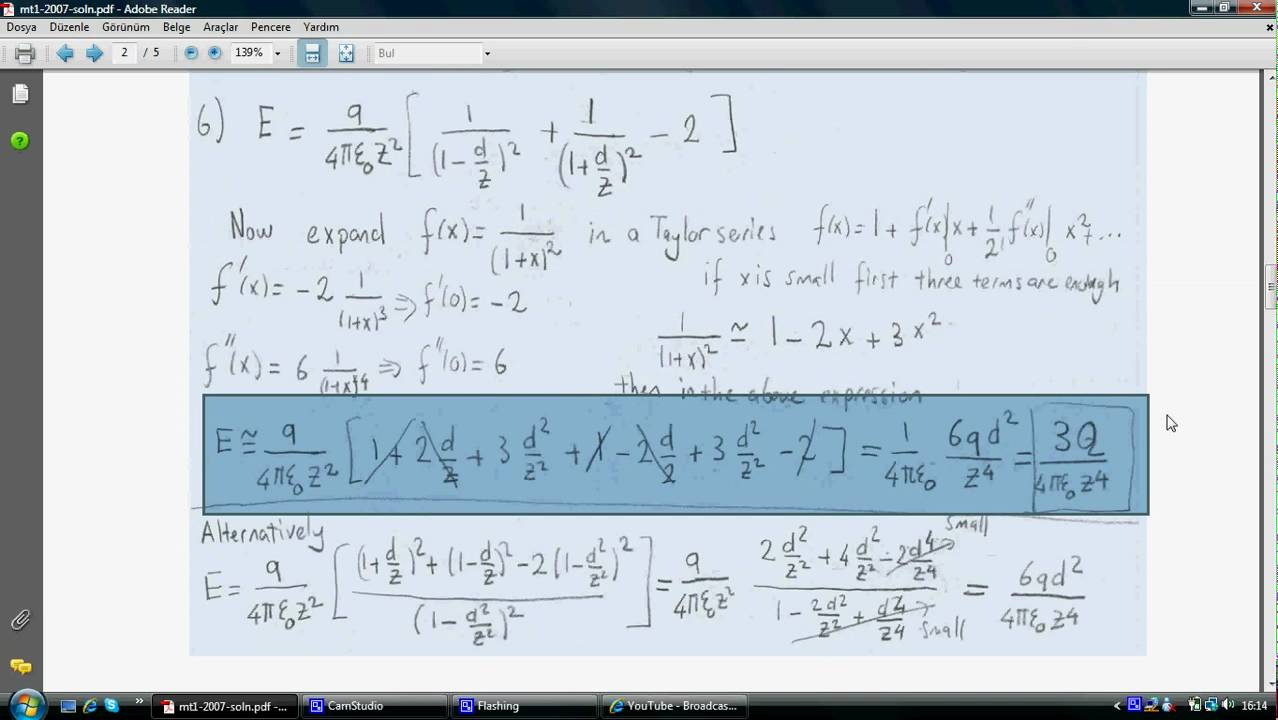 mt1-2007-soln.pdf - Adobe Reader
Dosya Düzenle Görünüm Belge Araçlar Pencere Yardım
2 / 5 139% Bul
6) E = q/(4πε₀z²) [ 1/(1-d/z)² + 1/(1+d/z)² - 2 ]
Now expand f(x) = 1/(1+x)² in a Taylor series f(x) = 1 + f'(x)|₀ x + 1/2! f''(x)|₀ x² + ...
if x is small first three terms are enough
f'(x) = -2 1/(1+x)³ ⇒ f'(0) = -2
1/(1+x)² ≅ 1 - 2x + 3x²
f''(x) = 6 1/(1+x)⁴ ⇒ f''(0) = 6
then in the above expression
E ≅ q/(4πε₀z²) [ 1 + 2 d/z + 3 d²/z² + 1 - 2 d/z + 3 d²/z² - 2 ] = 1/(4πε₀) 6qd²/z⁴ = 3Q/(4πε₀z⁴)
Alternatively
E = q/(4πε₀z²) [ ((1+d/z)² + (1-d/z)² - 2(1-d²/z²)²)/(1-d²/z²)² ] = q/(4πε₀z²) (2 d²/z² + 4 d²/z² - 2 d⁴/z⁴)/(1 - 2d²/z² + d⁴/z⁴) = 6qd²/(4πε₀z⁴)
small
small
mt1-2007-soln.pdf -... CamStudio Flashing YouTube - Broadcas... 16:14